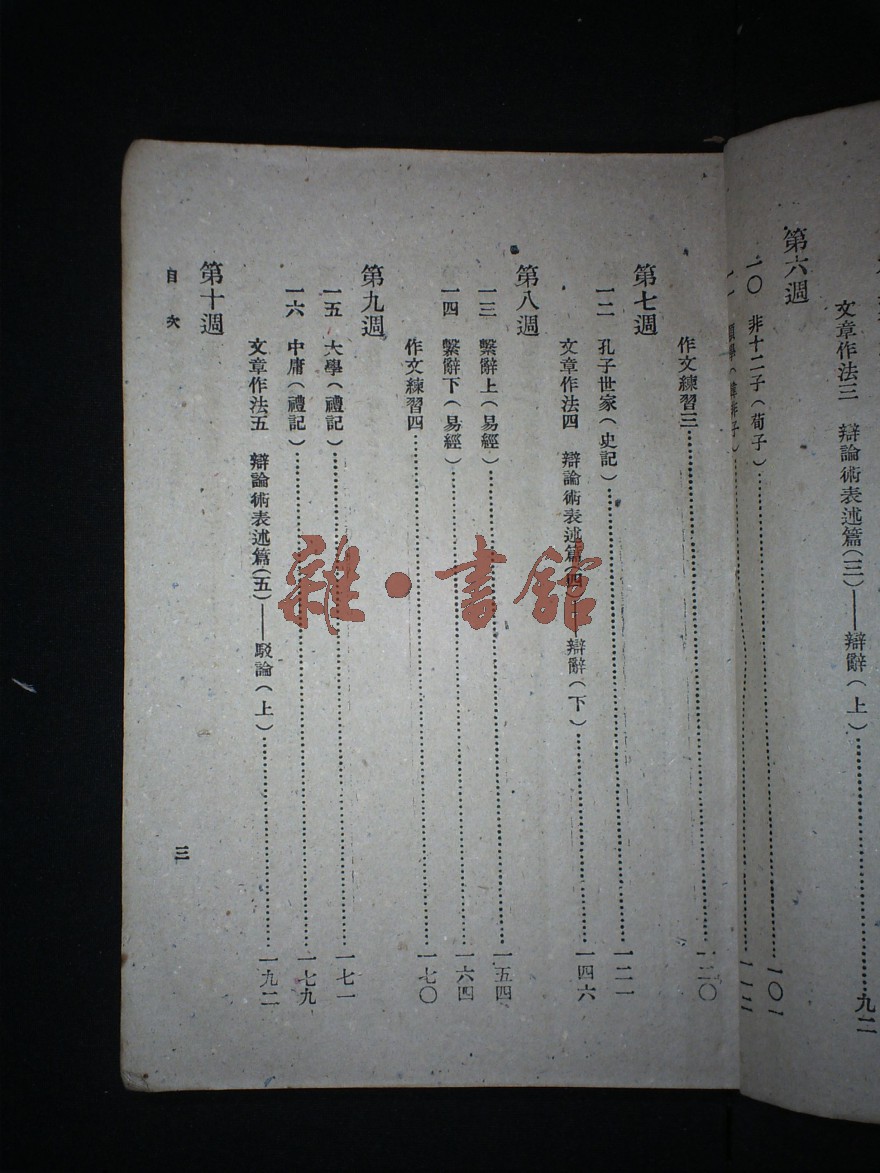 文章作法三　辯論術表述篇(三)——辯辭(上)……九二
第六週
一〇　非十二子(荀子)……一〇一
一一　顯學(韓非子)……一一二
作文練習三……一二〇
第七週
一二　孔子世家(史記)……一二一
文章作法四　辯論術表述篇(四)——辯辭(下)……一四六
第八週
一三　繫辭上(易經)……一五四
一四　繫辭下(易經)……一六四
作文練習四……一七〇
第九週
一五　大學(禮記)……一七一
一六　中庸(禮記)……一七九
文章作法五　辯論術表述篇(五)——駁論(上)……一九二
第十週
目次
三
雜·書館